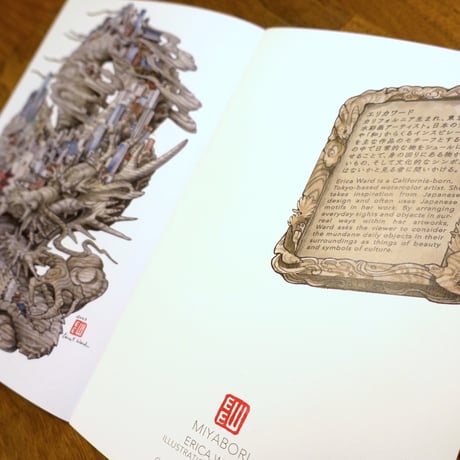 エリカワード
カリフォルニア生まれ、東
水彩画アーティスト。日本の
や「和」からくるインスピレ
を主な作品のモチーフとする
の中で日常的な物をシュールに
せることで、身の回りにある物か
いもの、そして文化的なシンボ
はないかと見る者に問いかける。
Erica Ward is a California-born,
Tokyo-based watercolor artist. She
takes inspiration from Japanese
design and often uses Japanese
motifs in her work. By arranging
everyday sights and objects in sur-
real ways within her artworks,
Ward asks the viewer to consider
the mundane daily objects in their
surroundings as things of beauty
and symbols of culture.
MIYABORI
ERICA W
ILLUSTRATION